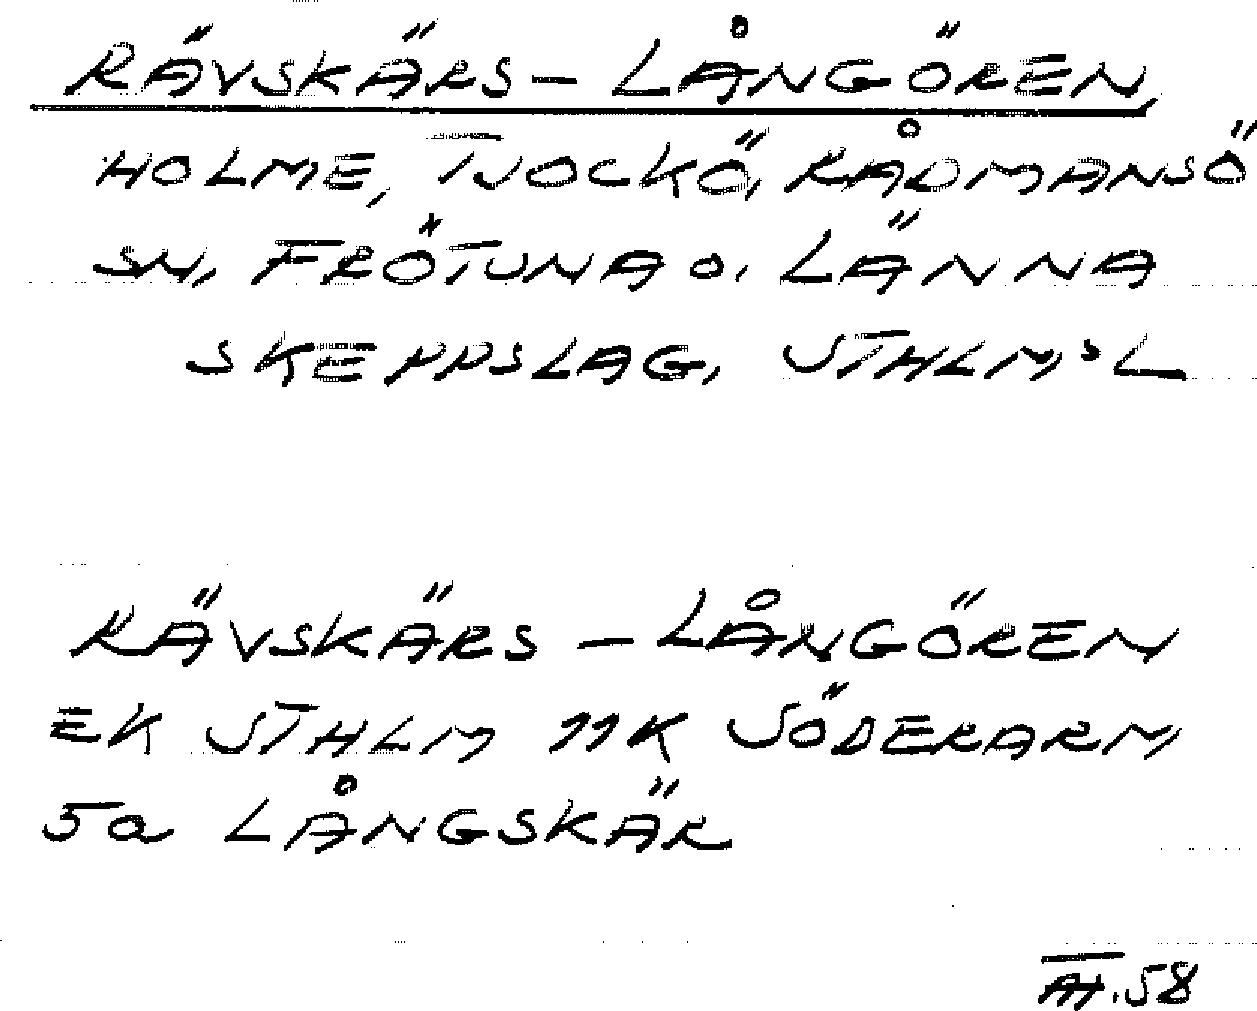 RÄVSKÄRS - LÅNGÖREN,
HOLME, TJOCKÖ, RÅDMANSÖ
SN, FRÖTUNA O. LÄNNA
SKEPPSLAG, STHLM:S L
RÄVSKÄRS - LÅNGÖREN
EK STHLM 11K SÖDERARM,
5a LÅNGSKÄR
58